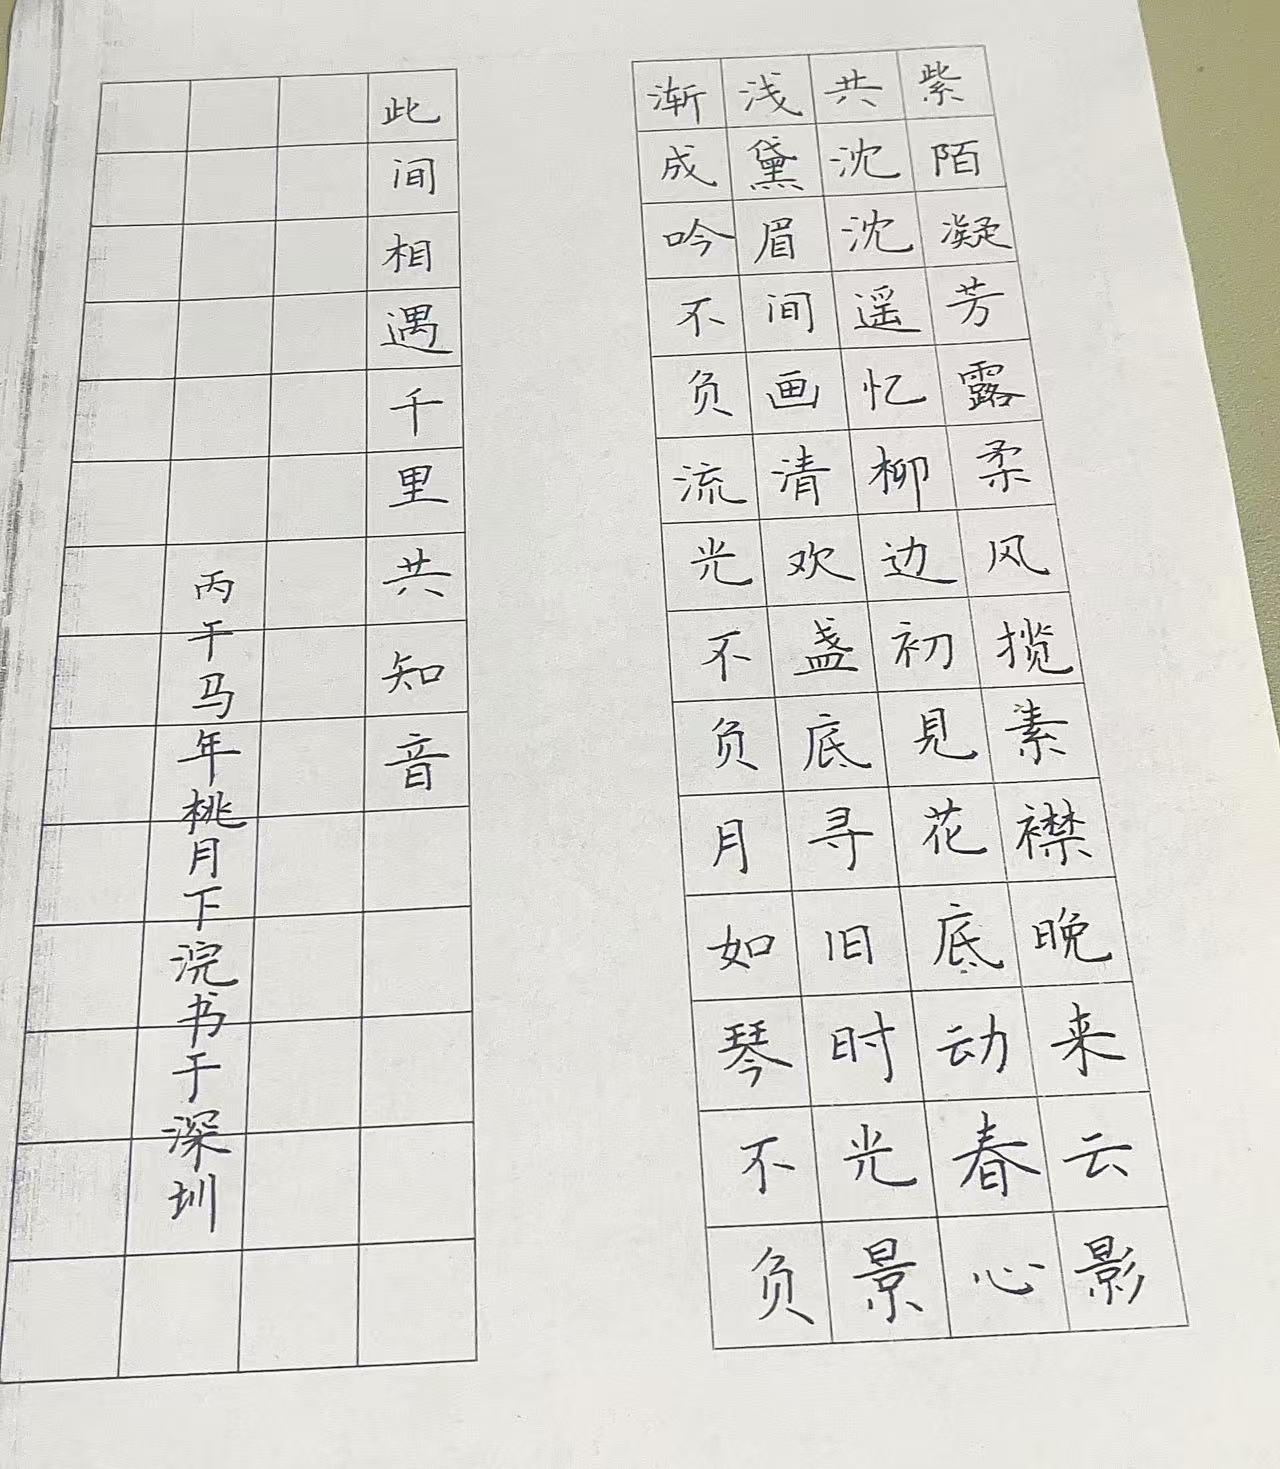 紫陌凝芳露柔风揽素襟晚来云影
共沈沈遥忆柳边初见花底动春心
浅黛眉间画清欢盏底寻旧时光景
渐成吟不负流光不负月如琴不负
此间相遇千里共知音
丙午马年桃月下浣书于深圳